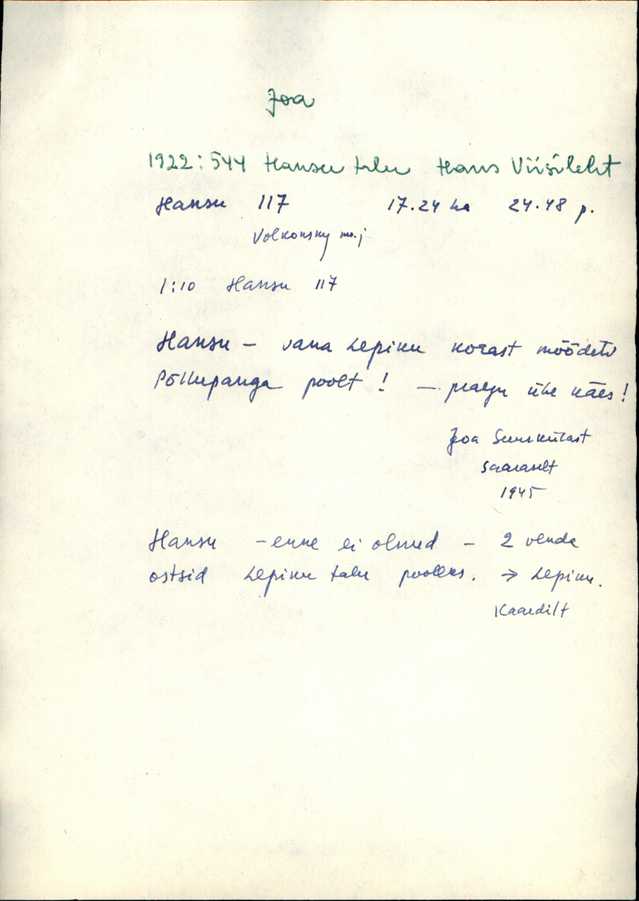 Joa
1922: 544 Hansu talu Hans Viisileht
Hansu 117 17.24 ha 24.48 p.
Volkonsky m.j
1:10 Hansu 117
Hansu – vana Lepiku kohast mõõdetu
Põllupanga poolt! – praegu ühe käes!
Joa Suurkülast
Saaraselt
1945
Hansu – enne ei olnud – 2 venda
ostsid Lepiku talu pooleks. → Lepiku.
Kaardilt